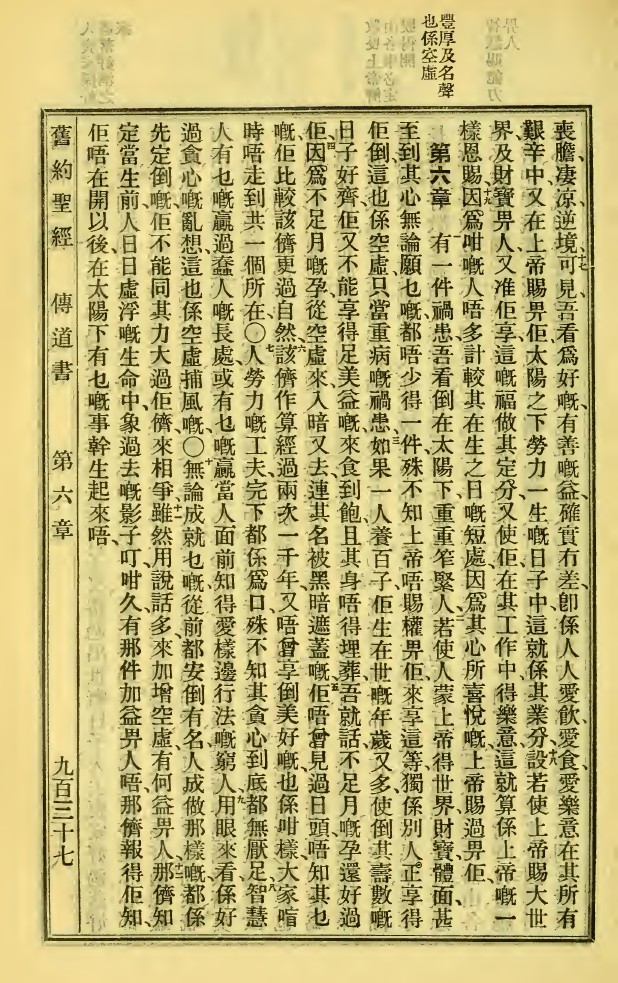 豐厚及名聲
也係空虛
喪膽凄凉逆境、十七可見吾看爲好嘅有善嘅益確實有差、卽係人人愛飲、愛食、愛樂意在其所有
艱辛中、又在上帝賜畀佢太陽之下勞力一生嘅日子中、這就係其業分、十八設若使上帝賜大世
界及財寶畀人、又准佢享這嘅福、做其定分、又使佢在其工作中得樂意、這就算係上帝嘅一
樣恩賜、十九因爲咁嘅人唔多計較其在生之日嘅短處、因爲其心所喜悅嘅、上帝賜過畀佢、
第六章　一有一件禍患、吾看倒在太陽下、重重笮緊人、二若使人蒙上帝得世界財寶體面、甚
至到其心無論願乜嘅都唔少得一件、殊不知上帝唔賜權畀佢來享這等、獨係別人正享得
佢倒、這也係空虛、只當重病嘅禍患、三如果一人養百子、佢生在世嘅年歲又多、使倒其壽數嘅
日子好齊、佢又不能享得足美益嘅來食到飽、且其身唔得埋葬、吾就話不足月嘅孕還好過
佢、四因爲不足月嘅孕、從空虛來、入暗又去、連其名被黑暗遮蓋嘅、五佢唔曾見過日頭、唔知其乜
嘅、佢比較該儕更過自然、六該儕作算經過兩次一千年、又唔曾享倒美好嘅、也係咁樣、大家喧
時唔走到共一個所在、〇七人勞力嘅工夫、完下都係爲口、殊不知其貪心到底都無厭足、八智慧
人有乜嘅贏過蠢人嘅長處、或有乜嘅贏當人面前知得愛樣邊行法嘅窮人、九用眼來看係好
過貪心嘅亂想、這也係空虛捕風嘅、〇十無論成就乜嘅、從前都安倒有名、人成做那樣嘅、都係
先定倒嘅、佢不能同其力大過佢儕來相爭、十一雖然用說話多來加增空虛、有何益畀人、十二那儕知
定當生前人日日虛浮嘅生命中、象過去嘅影子、叮咁久、有那件加益畀人唔、那儕報得佢知、
佢唔在開以後、在太陽下有乜嘅事幹生起來唔、
舊約聖經　傳道書　第六章　九百三十七